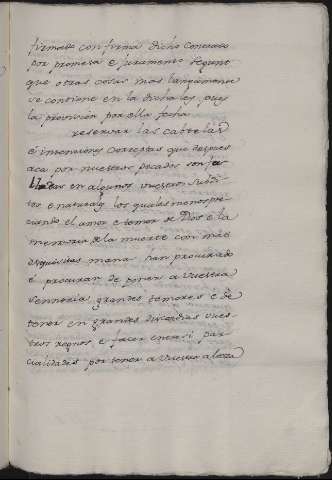 firmase con firma dicho Concierto
por promesa e juramento segunt
que otras cosas mas largamente
se contiene en la dicha ley pues
la provision por ella fecha
reservar las cabtelas
e intenciones que despues
aca por nuestros pecados son fa-
lladas en algunos vuestros subdi-
tos e naturales los quales menospre-
ciando el amor e temor de Dios e la
memoria de la muerte con mas
esquisitas mana han procurado
e procuran de poner a vuestra
sennoria grandes temores e de
tener en grandes discordias vues-
tros regnos e facer en ellos par-
cialidades por tener a vuestra alteza